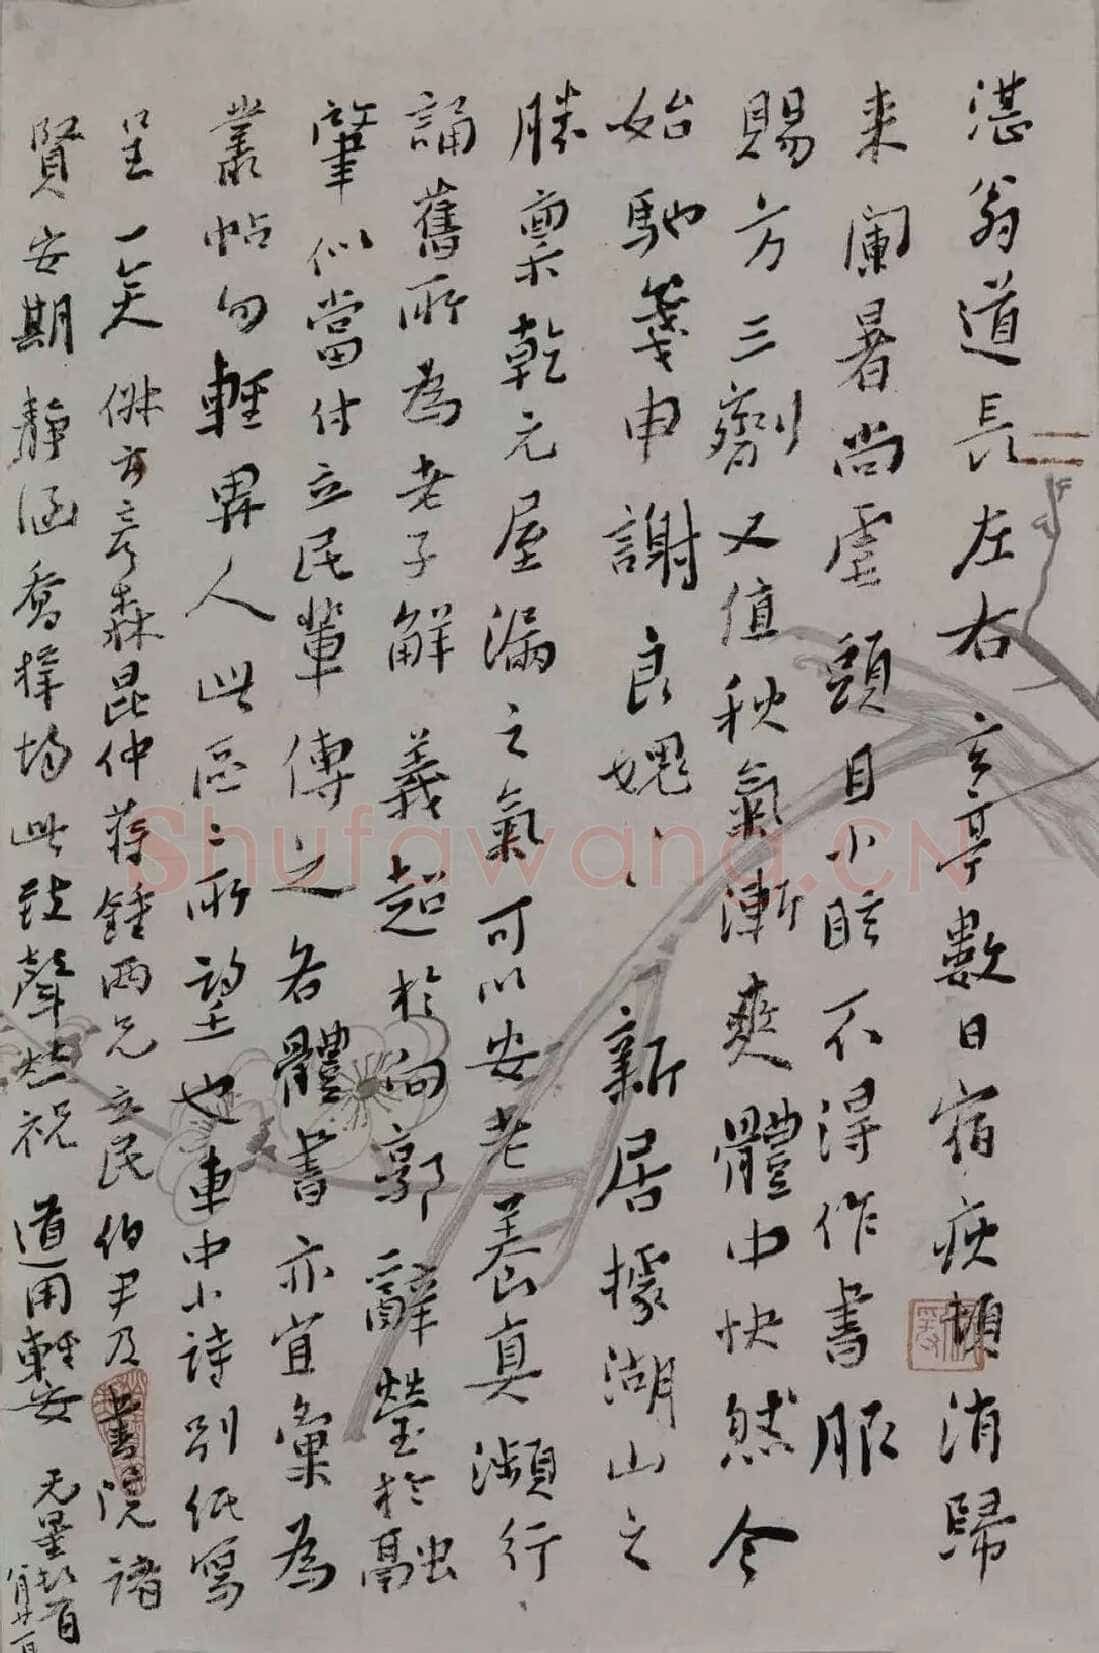 湛翁道長左右玄亭數日宿疾頓消歸
来闌暑尚虐頭目小眩不得作書服
賜方三劑又值秋氣漸爽體中快然今
始馳箋申謝良媿〻新居據湖山之
勝稟乾元屋漏之氣可以安老養真瀕行
誦舊所為老子解義超於向郭辭瑩於融
肇似當付立民輩傳之各體書亦宜彙為
叢帖勿輕畀人此區〻所望也車中小詩別紙寫
呈一笑俳方彥森昆仲蔣鍾兩兄立民伯尹及書院諸
賢安期靜涵喬梓均此致聲並祝道用輕安无量頓首
八月廿一日
Shufawang.CN